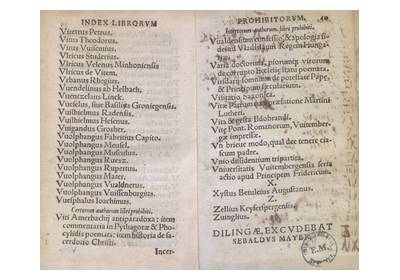 INDEX LIBRORVM
Viretus Petrus.
Vitus Theodorus.
Vitus Vuisemius.
Vlricus Studerius.
Vlricus Velenus Minhoniensis
Vlricus de Vitem.
Vrbanus Rhegius.
Vuendelinus ab Helbach.
Vuenczelaus Linck.
Vueselus, siue Basilius Groniegensis.
Vuilhielmus Radensis.
Vuilhielmus Hesenus.
Vuigandus Grosher.
Vuolphangus Fabritius Capito.
Vuolphangus Meusel.
Vuolphangus Musculus.
Vuolphangus Ruesz.
Vuolphangus Rupertus.
Vuolphangus Mater.
Vuolphangus Vualdnerus.
Vuolphangus Vuissenburgius.
Vuesphalus Ioachimus.
Certorum authorum libri prohibiti.
Viti Amerbachij antiparadoxa; item
commentaria in Pythagoræ & Pho
cylidis poemata; item historia de sa
cerdotio Christi.
Incer-
PROHIBITORVM.
Incertorum authorum libri prohibiti.
Vualdensium confessio, & apologia fi-
dei ad Vladislaum Regem Hunga-
riæ.
Varia doctorum, piorumque virorum
de corrupto Ecclesiæ statu poemata.
de potestate Papæ,
& Principum sęcularium.
Visitatio Saxonica.
Vitæ Patrum cum præfatione Martini
Lutheri.
Vita & gesta Hildobrandi.
Vitę Pont. Romanorum, Vuitember-
gæ impressæ.
Vn brieue modo, qual dee tenere cia-
scum padre.
Vnio dissidentium tripartita.
Vniuersitatis Vuitembergensis scri
actio apud Principem Fridericum.
X.
Xystus Betuleius Augustanus.
Z.
Zelius Keyserspergensis.
Zuinglius.
DILINGÆ, EXCVDEBAT
SEBALDVS MAYER.